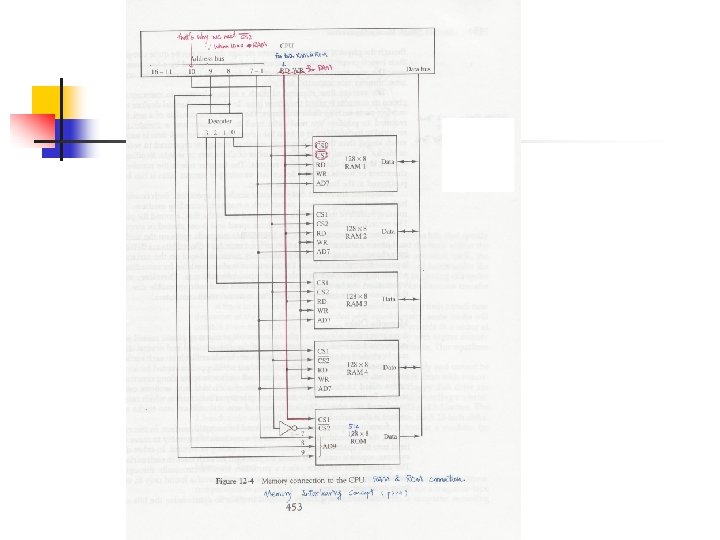 that's why we need CS2
when 1000 RAM
CPU
for both RAM & ROM
Address bus
RD WR for RAM
16–11 10 9 8 7–1
Data bus
Decoder
3 2 1 0
CS1
CS2
RD
WR
AD7
128 × 8
RAM 1
Data
CS1
CS2
RD
WR
AD7
128 × 8
RAM 2
Data
CS1
CS2
RD
WR
AD7
128 × 8
RAM 3
Data
CS1
CS2
RD
WR
AD7
128 × 8
RAM 4
Data
CS1
CS2
1–7
8
9
AD9
512
128 × 8
ROM
Data
Figure 12-4 Memory connection to the CPU. RAM & ROM connection.
Memory Interleaving Concept
453